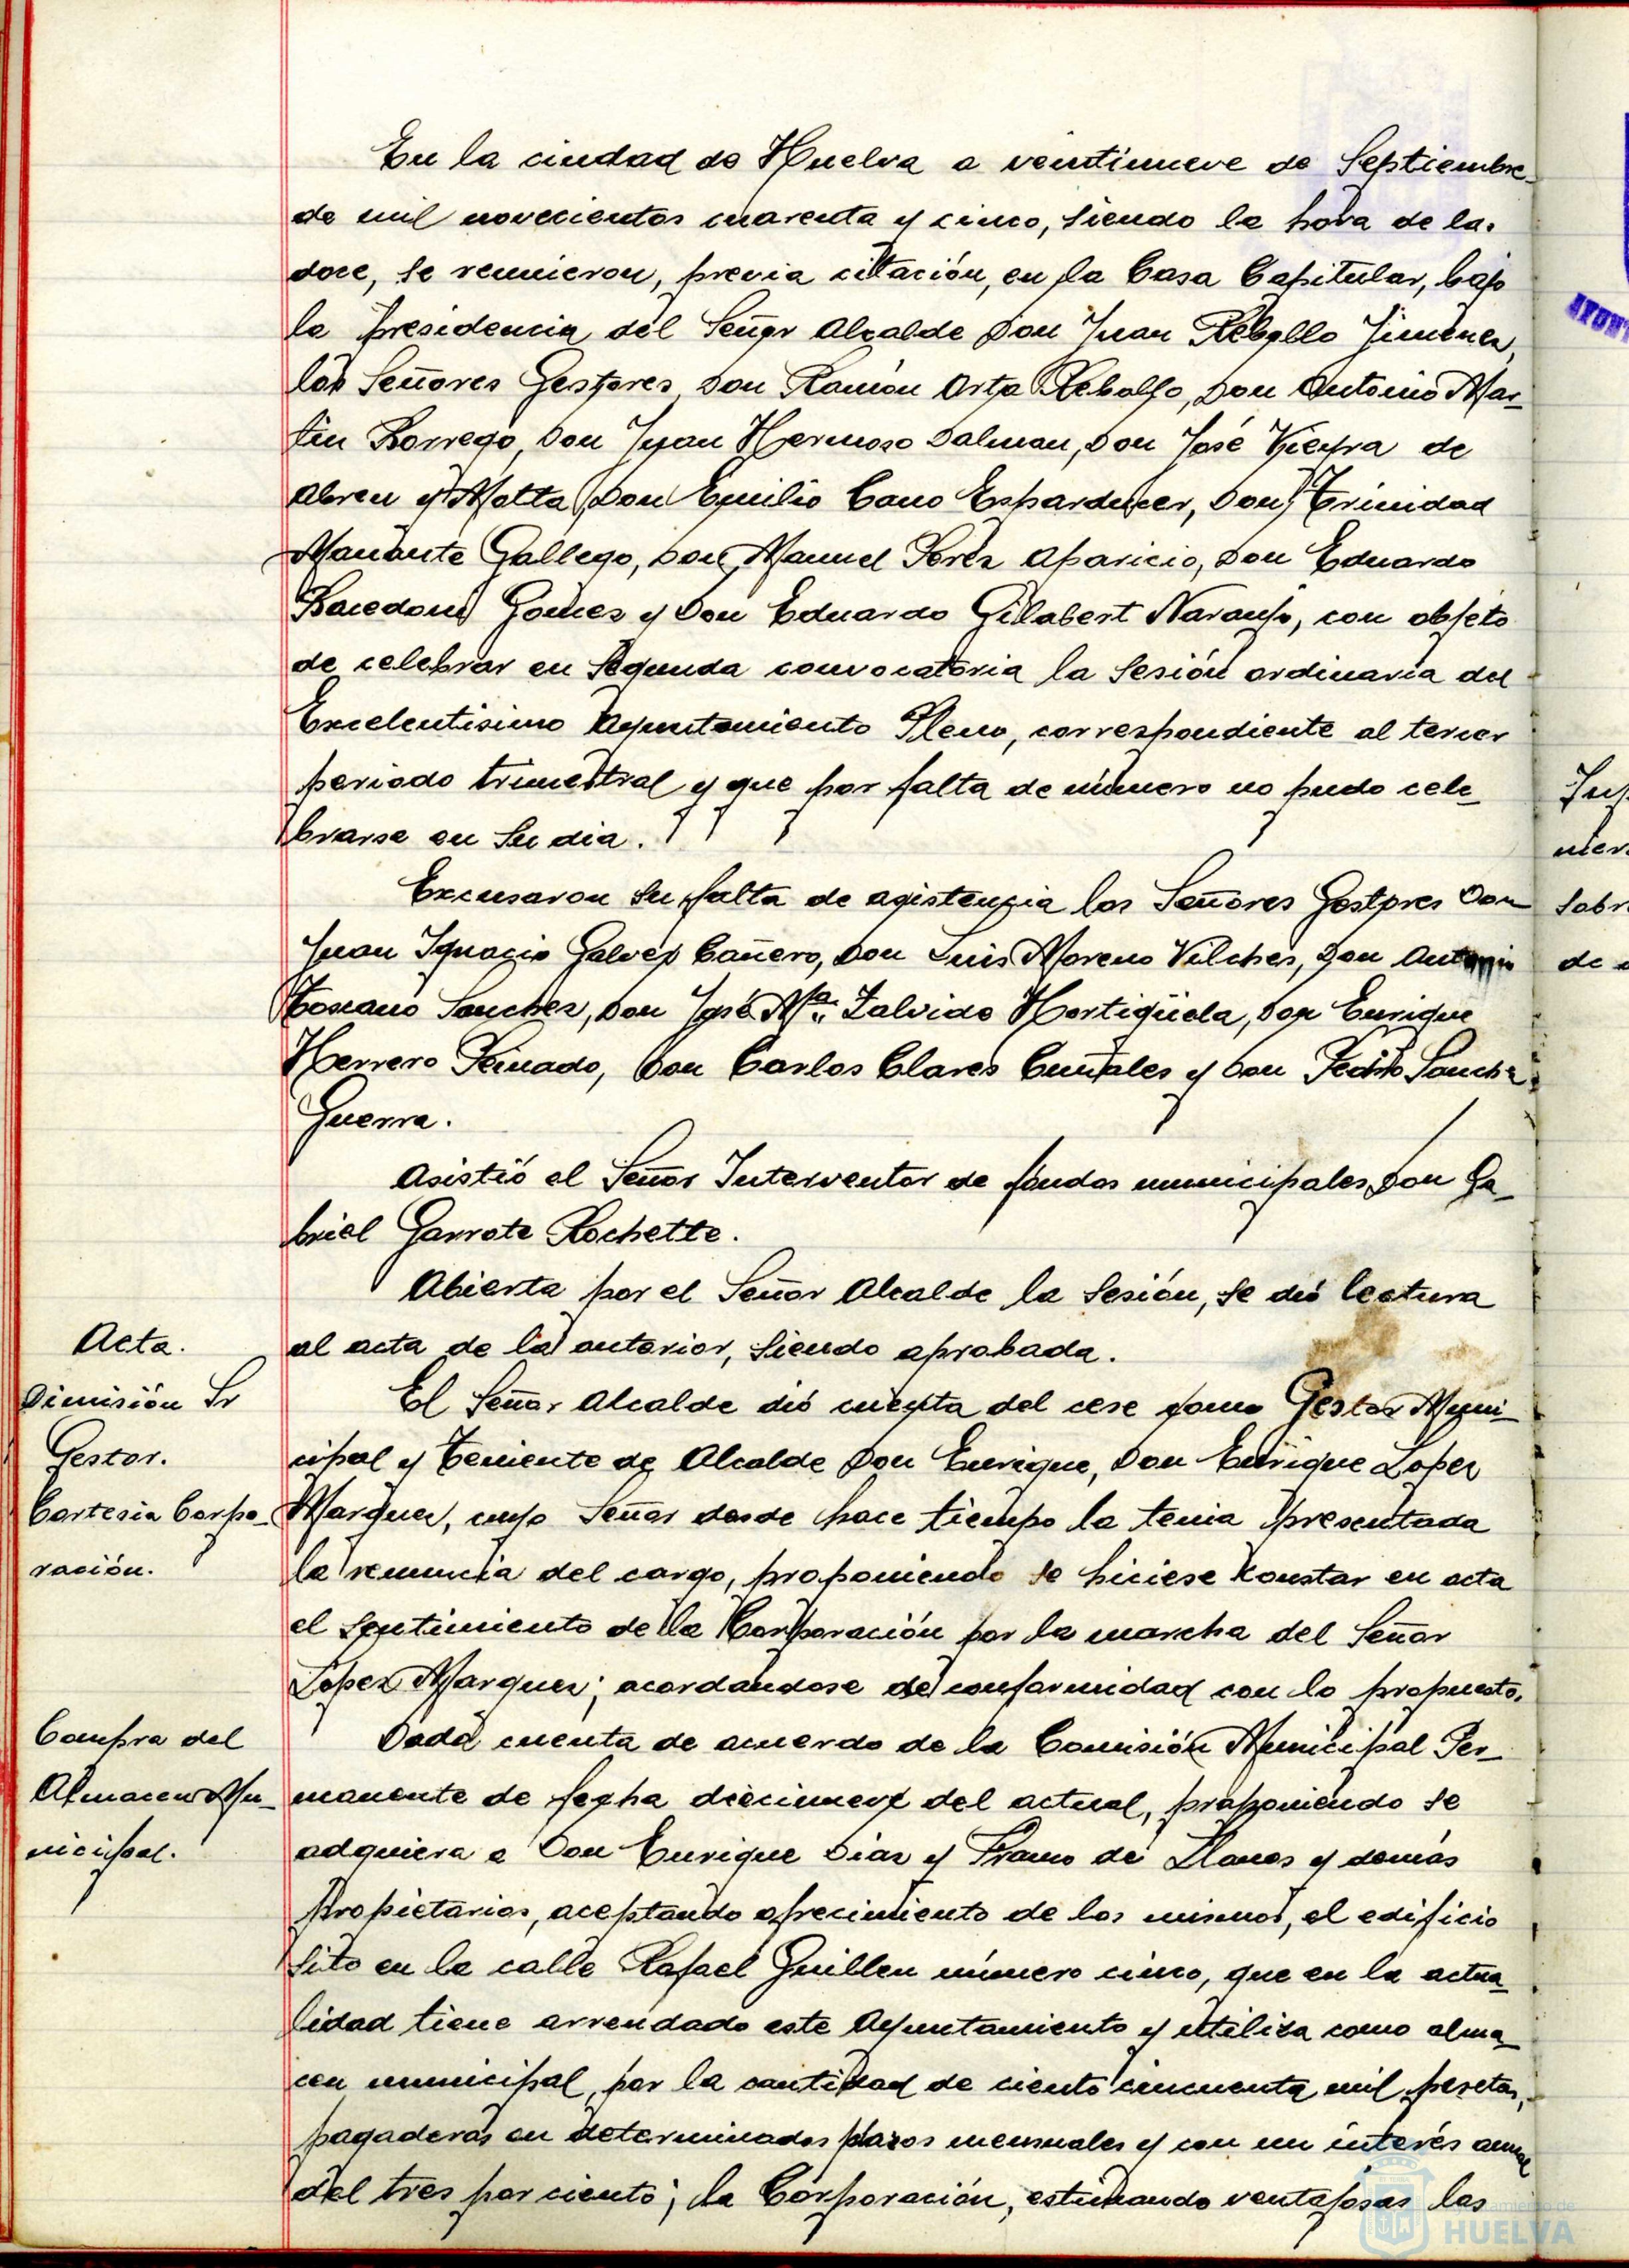 En la ciudad de Huelva a veintinueve de Septiembre
de mil novecientos cuarenta y cinco, siendo la hora de las
doce, se reunieron, previa citación, en la Casa Capitular, bajo
la presidencia del Señor Alcalde Don Juan Rebollo Jimenez,
los Señores Gestores Don Ramón Orta Rebollo, Don Antonio Mar-
tin Borrego, Don Juan Hermoso Dalman, Don José Vieyra de
Abreu y Motta, Don Emilio Cano Esparducer, Don Trinidad
Manante Gallego, Don Manuel Perez Aparicio, Don Eduardo
Racedoni Gomez y Don Eduardo Gilabert Naranjo, con objeto
de celebrar en segunda convocatoria la Sesión ordinaria del
Excelentisimo Ayuntamiento Pleno, correspondiente al tercer
periodo trimestral y que por falta de número no pudo cele-
brarse en su dia.
Excusaron su falta de asistencia los Señores Gestores Don
Juan Ignacio Galvez Cañero, Don Luis Moreno Vilches, Don Antonio
Toscano Sanchez, Don José Mª Zalvide Hortigüela, Don Enrique
Herrero Peinado, Don Carlos Clares y Don Pedro Sanchez
Guerra.
Asistió el Señor Interventor de fondos municipales Don Ga-
briel Garrote Rochette.
Abierta por el Señor Alcalde la sesión, se dió lectura
Acta.
al acta de la anterior, siendo aprobada.
Dimisión Sr
Gestor.
Cortesia Corpo-
ración.
El Señor Alcalde dió cuenta del cese como Gestor Muni-
cipal y Teniente de Alcalde Don Enrique, Don Enrique Lopez
Marquez, cuyo Señor desde hace tiempo la tenia presentada
la renuncia del cargo, proponiendo se hiciese constar en acta
el sentimiento de la Corporación por la marcha del Señor
Lopez Marquez; acordandose de conformidad con lo propuesto.
Compra del
Almacen Mu-
nicipal.
Dada cuenta de acuerdo de la Comisión Municipal Per-
manente de fecha diecinueve del actual, proponiendo se
adquiera a Don Enrique Diaz y Franco de Llanos y demás
propietarios, aceptando ofrecimiento de los mismos, el edificio
sito en la calle Rafael Guillen número cinco, que en la actua-
lidad tiene arrendado este Ayuntamiento y utiliza como alma-
cen municipal, por la cantidad de ciento cincuenta mil pesetas,
pagaderas en determinados plazos mensuales y con un interés anual
del tres por ciento; la Corporación, estimando ventajosas las
Ayuntamiento de
HUELVA